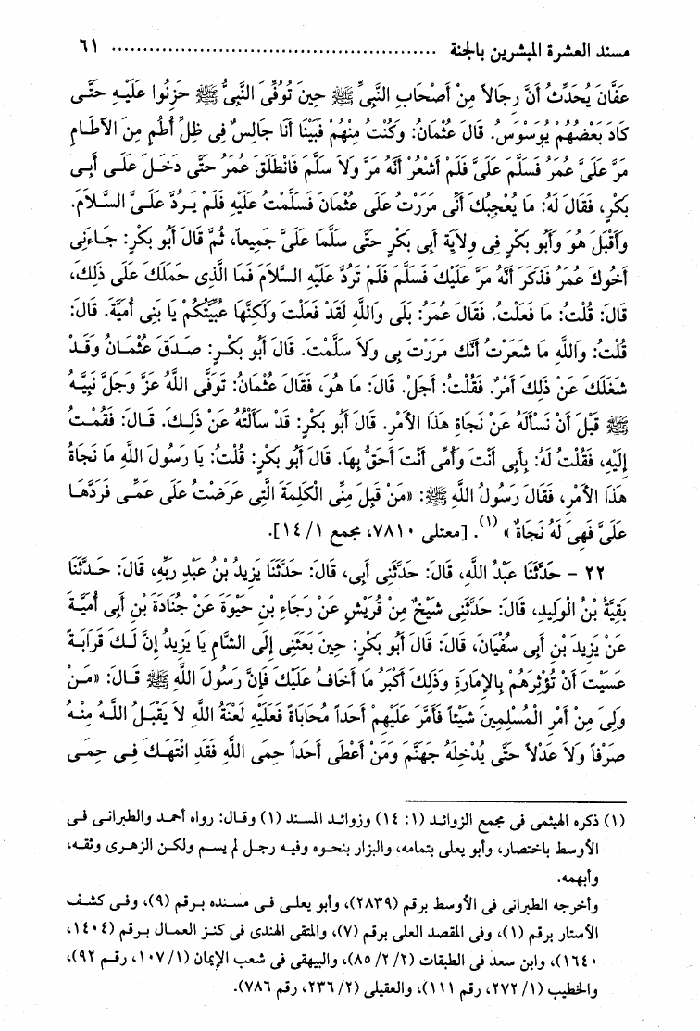 مسند العشرة المبشرين بالجنة ................................................ ٦١
عَفَّانَ يُحَدِّثُ أَنَّ رِجَالاً مِنْ أَصْحَابِ النَّبِىِّ ﷺ حِينَ تُوُفِّىَ النَّبِىُّ ﷺ حَزِنُوا عَلَيْهِ حَتَّى
كَادَ بَعْضُهُمْ يُوَسْوَسُ. قَالَ عُثْمَانُ: وَكُنْتُ مِنْهُمْ فَبَيْنَا أَنَا جَالِسٌ فِى ظِلِّ أُطُمٍ مِنَ الآطَامِ
مَرَّ عَلَىَّ عُمَرُ فَسَلَّمَ عَلَىَّ فَلَمْ أَشْعُرْ أَنَّهُ مَرَّ وَلاَ سَلَّمَ فَانْطَلَقَ عُمَرُ حَتَّى دَخَلَ عَلَى أَبِى
بَكْرٍ، فَقَالَ لَهُ: مَا يُعْجِبُكَ أَنِّى مَرَرْتُ عَلَى عُثْمَانَ فَسَلَّمْتُ عَلَيْهِ فَلَمْ يَرُدَّ عَلَىَّ السَّلاَمَ.
وَأَقْبَلَ هُوَ وَأَبُو بَكْرٍ فِى وِلاَيَةِ أَبِى بَكْرٍ حَتَّى سَلَّمَا عَلَىَّ جَمِيعاً، ثُمَّ قَالَ أَبُو بَكْرٍ: جَاءَنِى
أَخُوكَ عُمَرُ فَذَكَرَ أَنَّهُ مَرَّ عَلَيْكَ فَسَلَّمَ فَلَمْ تَرُدَّ عَلَيْهِ السَّلاَمَ فَمَا الَّذِى حَمَلَكَ عَلَى ذَلِكَ،
قَالَ: قُلْتُ: مَا فَعَلْتُ. فَقَالَ عُمَرُ: بَلَى وَاللَّهِ لَقَدْ فَعَلْتَ وَلَكِنَّهَا عُبِّيَّتُكُمْ يَا بَنِى أُمَيَّةَ. قَالَ:
قُلْتُ: وَاللَّهِ مَا شَعَرْتُ أَنَّكَ مَرَرْتَ بِى وَلاَ سَلَّمْتَ. قَالَ أَبُو بَكْرٍ: صَدَقَ عُثْمَانُ وَقَدْ
شَغَلَكَ عَنْ ذَلِكَ أَمْرٌ. فَقُلْتُ: أَجَلْ. قَالَ: مَا هُوَ، فَقَالَ عُثْمَانُ: تَوَفَّى اللَّهُ عَزَّ وَجَلَّ نَبِيَّهُ
ﷺ قَبْلَ أَنْ نَسْأَلَهُ عَنْ نَجَاةِ هَذَا الأَمْرِ. قَالَ أَبُو بَكْرٍ: قَدْ سَأَلْتُهُ عَنْ ذَلِكَ. قَالَ: فَقُمْتُ
إِلَيْهِ، فَقُلْتُ لَهُ: بِأَبِى أَنْتَ وَأُمِّى أَنْتَ أَحَقُّ بِهَا. قَالَ أَبُو بَكْرٍ: قُلْتُ: يَا رَسُولَ اللَّهِ مَا نَجَاةُ
هَذَا الأَمْرِ، فَقَالَ رَسُولُ اللَّهِ ﷺ: «مَنْ قَبِلَ مِنِّى الْكَلِمَةَ الَّتِى عَرَضْتُ عَلَى عَمِّى فَرَدَّهَا
عَلَىَّ فَهِىَ لَهُ نَجَاةٌ» (١). [معتلى ٧٨١٠، مجمع ١٤/١].
٢٢ - حَدَّثَنَا عَبْدُ اللَّهِ، قَالَ: حَدَّثَنِى أَبِى، قَالَ: حَدَّثَنَا يَزِيدُ بْنُ عَبْدِ رَبِّهِ، قَالَ: حَدَّثَنَا
بَقِيَّةُ بْنُ الْوَلِيدِ، قَالَ: حَدَّثَنِى شَيْخٌ مِنْ قُرَيْشٍ عَنْ رَجَاءِ بْنِ حَيْوَةَ عَنْ جُنَادَةَ بْنِ أَبِى أُمَيَّةَ
عَنْ يَزِيدَ بْنِ أَبِى سُفْيَانَ، قَالَ: قَالَ أَبُو بَكْرٍ: حِينَ بَعَثَنِى إِلَى الشَّامِ يَا يَزِيدُ إِنَّ لَكَ قَرَابَةً
عَسَيْتَ أَنْ تُؤْثِرَهُمْ بِالإِمَارَةِ وَذَلِكَ أَكْبَرُ مَا أَخَافُ عَلَيْكَ فَإِنَّ رَسُولَ اللَّهِ ﷺ قَالَ: «مَنْ
وَلِىَ مِنْ أَمْرِ الْمُسْلِمِينَ شَيْئاً فَأَمَّرَ عَلَيْهِمْ أَحَداً مُحَابَاةً فَعَلَيْهِ لَعْنَةُ اللَّهِ لاَ يَقْبَلُ اللَّهُ مِنْهُ
صَرْفاً وَلاَ عَدْلاً حَتَّى يُدْخِلَهُ جَهَنَّمَ وَمَنْ أَعْطَى أَحَداً حِمَى اللَّهِ فَقَدِ انْتَهَكَ فِى حِمَى
(١) ذكره الهيثمى فى مجمع الزوائد (١: ١٤) وزوائد المسند (١) وقال: رواه أحمد والطبرانى فى
الأوسط باختصار، وأبو يعلى بتمامه، والبزار بنحوه وفيه رجل لم يسم ولكن الزهرى وثقه،
وأبهمه.
وأخرجه الطبرانى فى الأوسط برقم (٢٨٣٩)، وأبو يعلى فى مسنده برقم (٩)، وفى كشف
الأستار برقم (١)، وفى المقصد العلى برقم (٧)، والمتقى الهندى فى كنز العمال برقم (١٤٠٤،
١٦٤٠)، وابن سعد فى الطبقات (٨٥/٢/٢)، والبيهقى فى شعب الإيمان (١٠٧/١، رقم ٩٢)،
والخطيب (٢٧٢/١، رقم ١١١)، والعقيلى (٢٣٦/٢، رقم ٧٨٦).